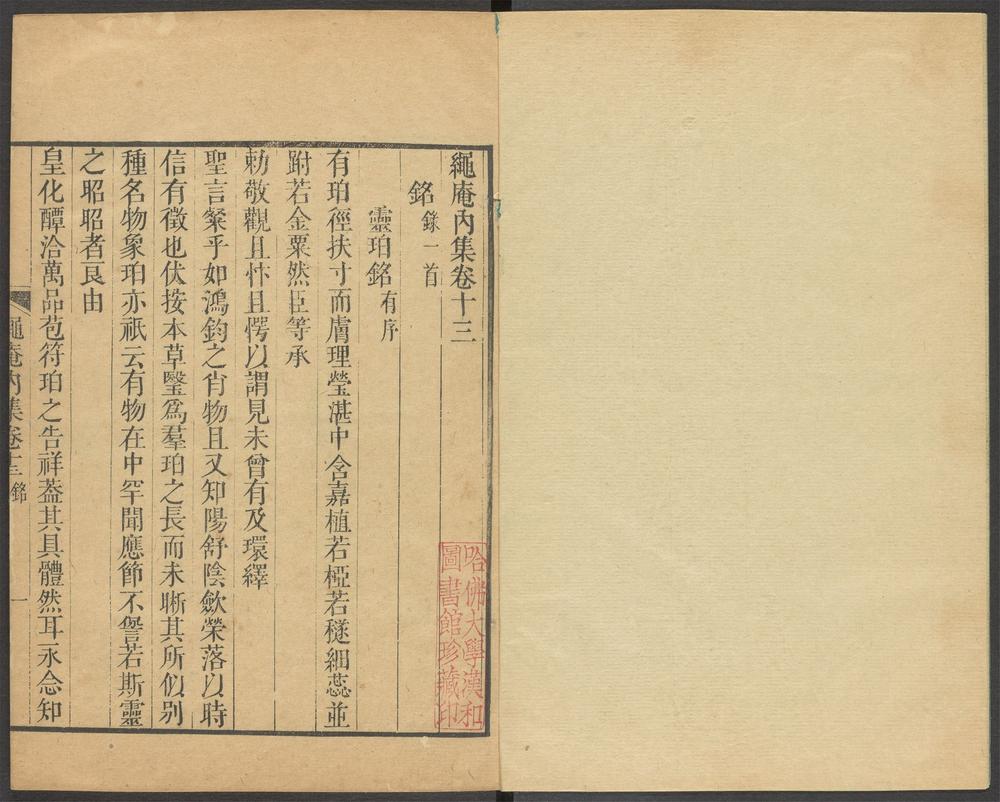 繩庵內集卷十三
銘錄一首
靈珀銘有序
有珀徑扶寸而膚理瑩湛中含嘉植若椏若穟細蕊並
跗若金粟然臣等承
勅敬觀且忭且愕以謂見未曾有及環繹
聖言粲乎如鴻鈞之肖物且又知陽舒陰歛榮落以時
信有徵也伏按本草瑿爲羣珀之長而未晰其所似别
種名物象珀亦祇云有物在中罕聞應節不諐若斯靈
之昭昭者良由
皇化醰洽萬品苞符珀之告祥葢其具體然耳永念知
繩庵內集卷十三 銘 一
哈佛大學漢和
圖書館珍藏印